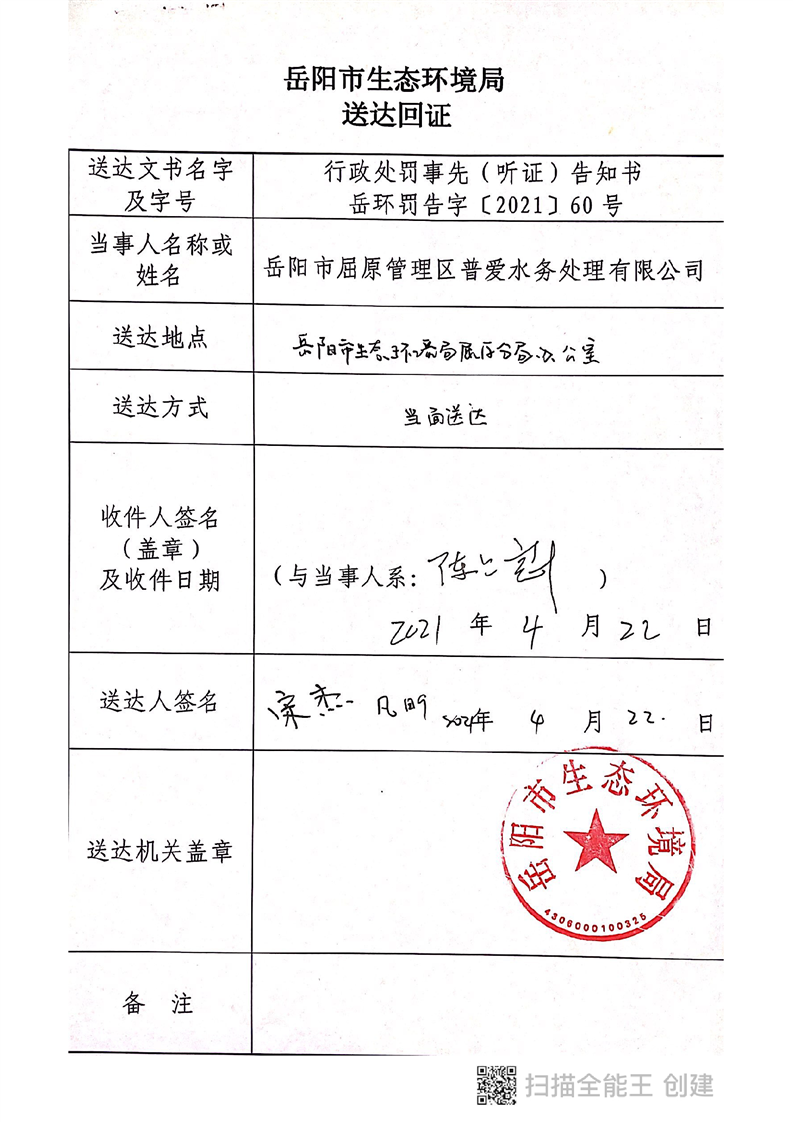 岳阳市生态环境局
送达回证
送达文书名字
及字号
行政处罚事先（听证）告知书
岳环罚告字〔2021〕60号
当事人名称或
姓名
岳阳市屈原管理区普爱水务处理有限公司
送达地点
岳阳市生态环境局屈原分局办公室
送达方式
当面送达
收件人签名
（盖章）
及收件日期
（与当事人系：陈 ）
2021 年 4 月 22 日
送达人签名
宋杰 凡明 2021年 4 月 22. 日
送达机关盖章
岳阳市生态环境局
4306000100325
备 注
扫描全能王 创建